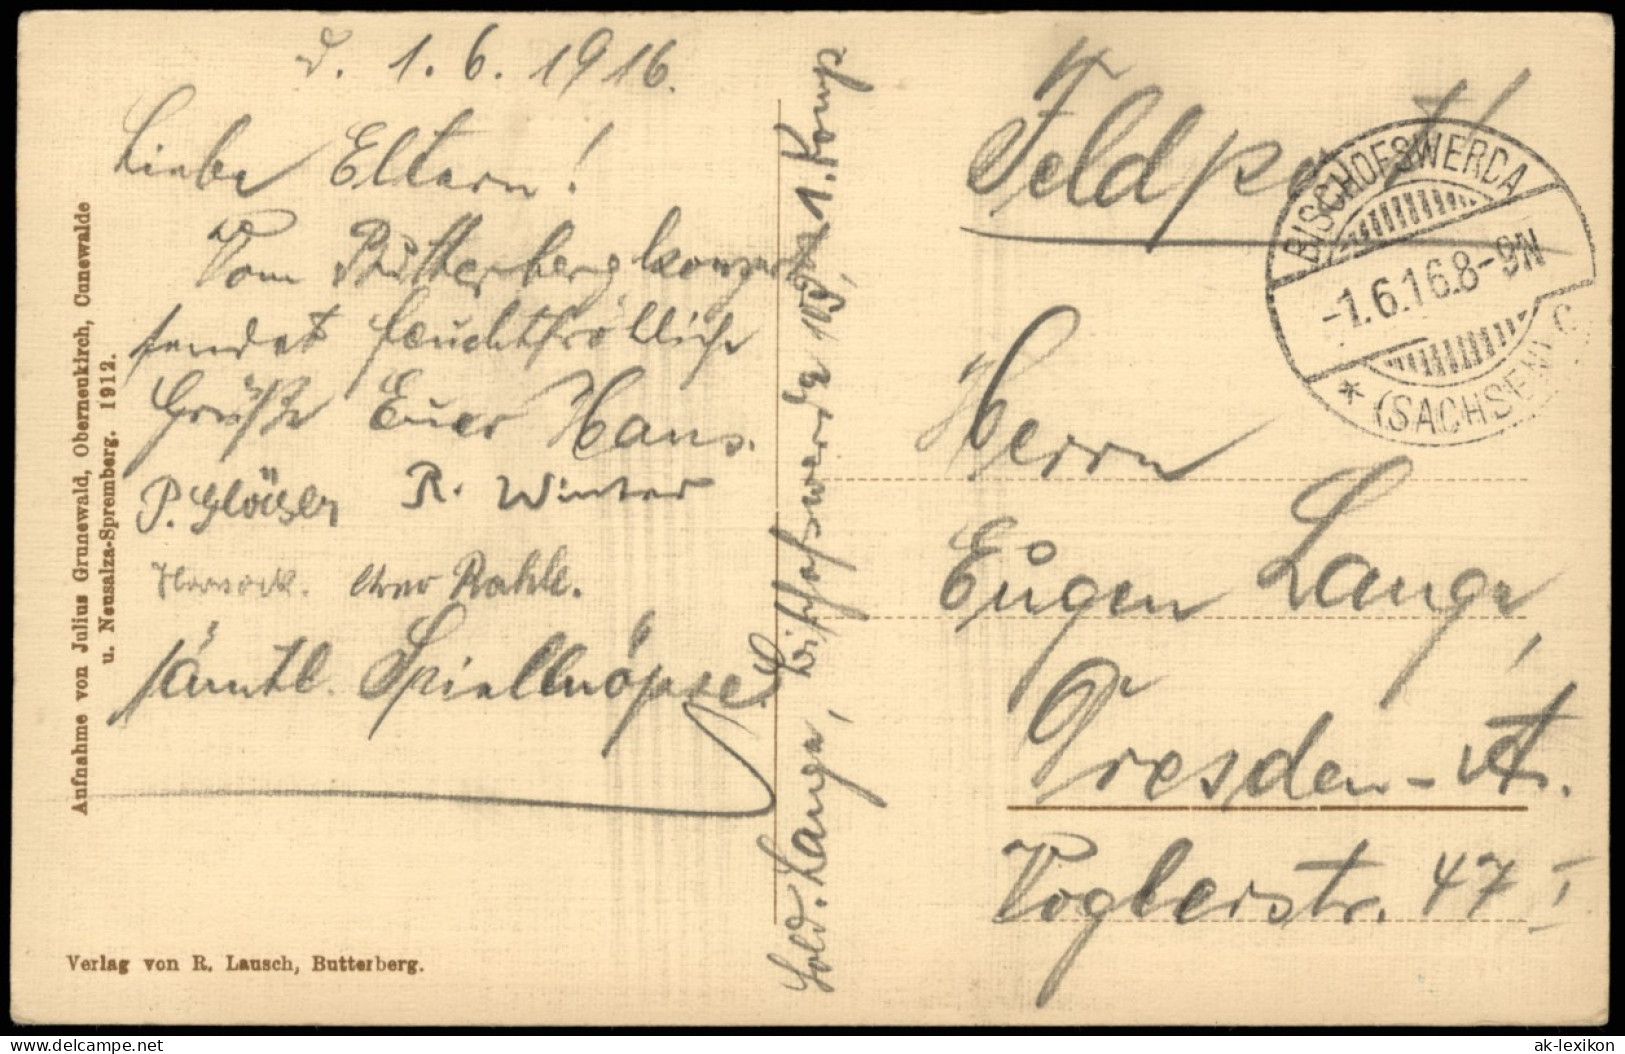 d. 1.6.1916.
Liebe Eltern!
Vom Butterbergkonzert
sendet feuchtfröhliche
Grüße Euer Hans.
P. Gläser R. Winter
Rahle.
sämtl. Spielknöpse
Sold. Lange, Bischofswerda 103, 1. Komp
Aufnahme von Julius Grunewald, Oberneukirch, Cunewalde
u. Neusalza-Spremberg. 1912.
Verlag von R. Lausch, Butterberg.
Feldpost
BISCHOFSWERDA
-1.6.16.8-9N
* (SACHSEN) c
Herrn
Eugen Lange,
Dresden-A.
Voglerstr. 47 I
delcampe.net
ak-lexikon